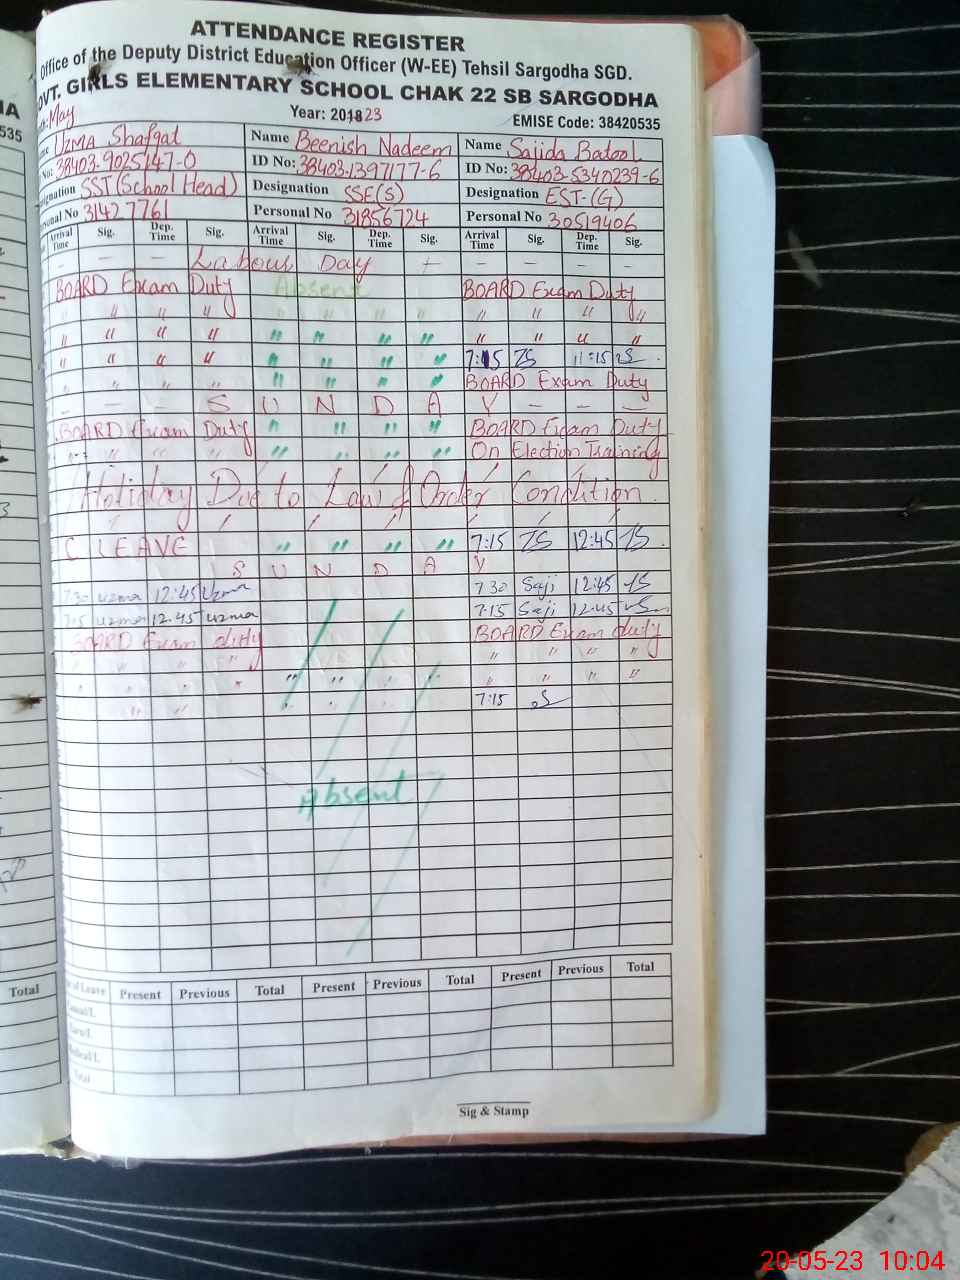 ATTENDANCE REGISTER
Office of the Deputy District Education Officer (W-EE) Tehsil Sargodha SGD.
OVT. GIRLS ELEMENTARY SCHOOL CHAK 22 SB SARGODHA
May Year: 2023 EMISE Code: 38420535
Uzma Shafqat Name Beenish Nadeem Name Sajida Batool
No: 38403-9025147-0 ID No: 38403-1397177-6 ID No: 38403-5340239-6
signation SST (School Head) Designation SSE(S) Designation EST-(G)
sonal No 31427761 Personal No 31856724 Personal No 30519406
Arrival Time Sig. Dep. Time Sig. Arrival Time Sig. Dep. Time Sig. Arrival Time Sig. Dep. Time Sig.
- - - Labour Day - - - -
BOARD Exam Duty Absent BOARD Exam Duty
" " " " " " " " " " "
" " " " " " " " " " "
" " " " " " " 7:15 ZS 11:15 ZS
" " " " " " " BOARD Exam Duty
- - - S U N D A Y - - -
BOARD Exam Duty " " " " BOARD Exam Duty
" " " " " " " On Election Training
Holiday Due to Law & Order Condition.
C LEAVE " " " " 7:15 ZS 12:45 ZS
S U N D A Y
7:30 uzma 12:45 Uzma 7 30 Saji 12:45
7:15 uzma 12:45 uzma 7:15 Saji 12:45
BOARD Exam duty BOARD Exam duty
" " " " " " "
" " " " " " " " " " "
" " " 7:15
Absent
of Leave Present Previous Total Present Previous Total Present Previous Total
Casual/L
Earn/L
Medical/L
Total
Sig & Stamp
535
Total
20-05-23 10:04